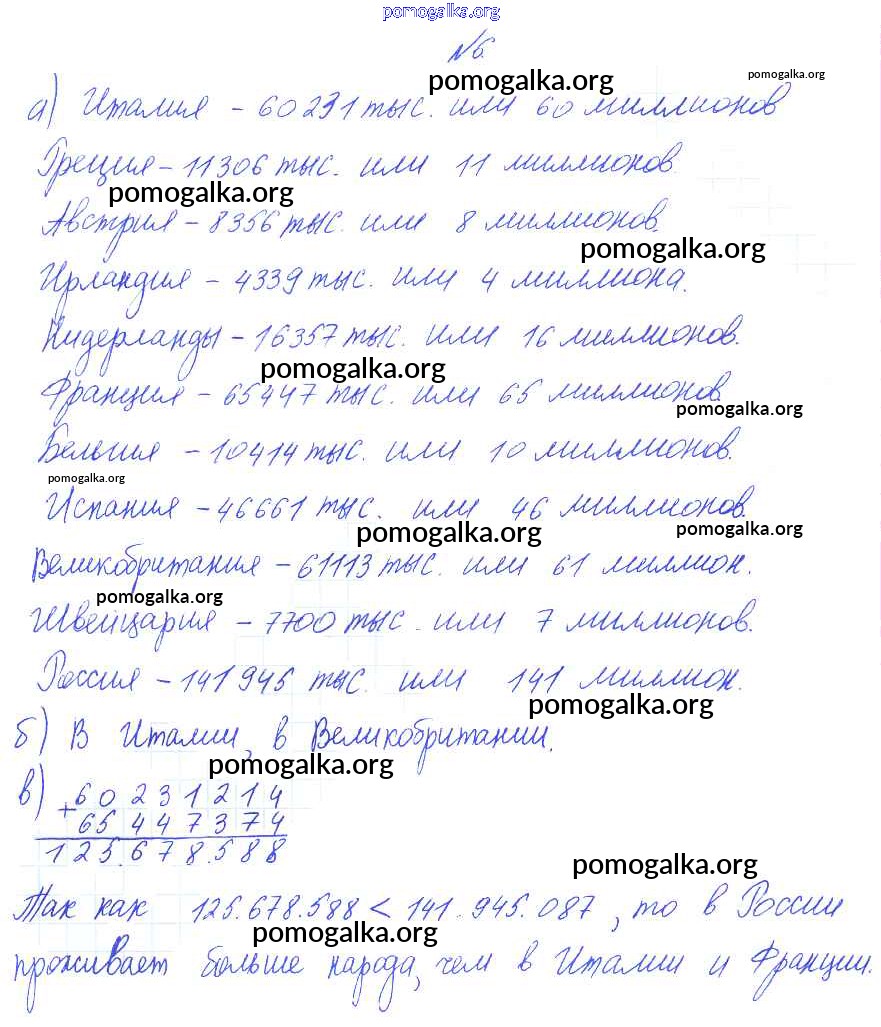 pomogalka.org
№6.
pomogalka.org pomogalka.org
а) Италия - 60 231 тыс. или 60 миллионов
Греция - 11306 тыс. или 11 миллионов.
pomogalka.org
Австрия - 8356 тыс. или 8 миллионов.
pomogalka.org
Ирландия - 4339 тыс. или 4 миллиона.
Нидерланды - 16357 тыс. или 16 миллионов.
pomogalka.org
Франция - 65447 тыс. или 65 миллионов
pomogalka.org
Бельгия - 10414 тыс. или 10 миллионов.
pomogalka.org
Испания - 46661 тыс. или 46 миллионов.
pomogalka.org pomogalka.org
Великобритания - 61113 тыс. или 61 миллион.
pomogalka.org
Швейцария - 7700 тыс. или 7 миллионов.
Россия - 141 945 тыс. или 141 миллион.
pomogalka.org
б) В Италии, в Великобритании.
pomogalka.org
в) + 60 231 214
65 447 374
125.678.588
pomogalka.org
Так как 125.678.588 < 141.945.087, то в России
pomogalka.org
проживает больше народа, чем в Италии и Франции.